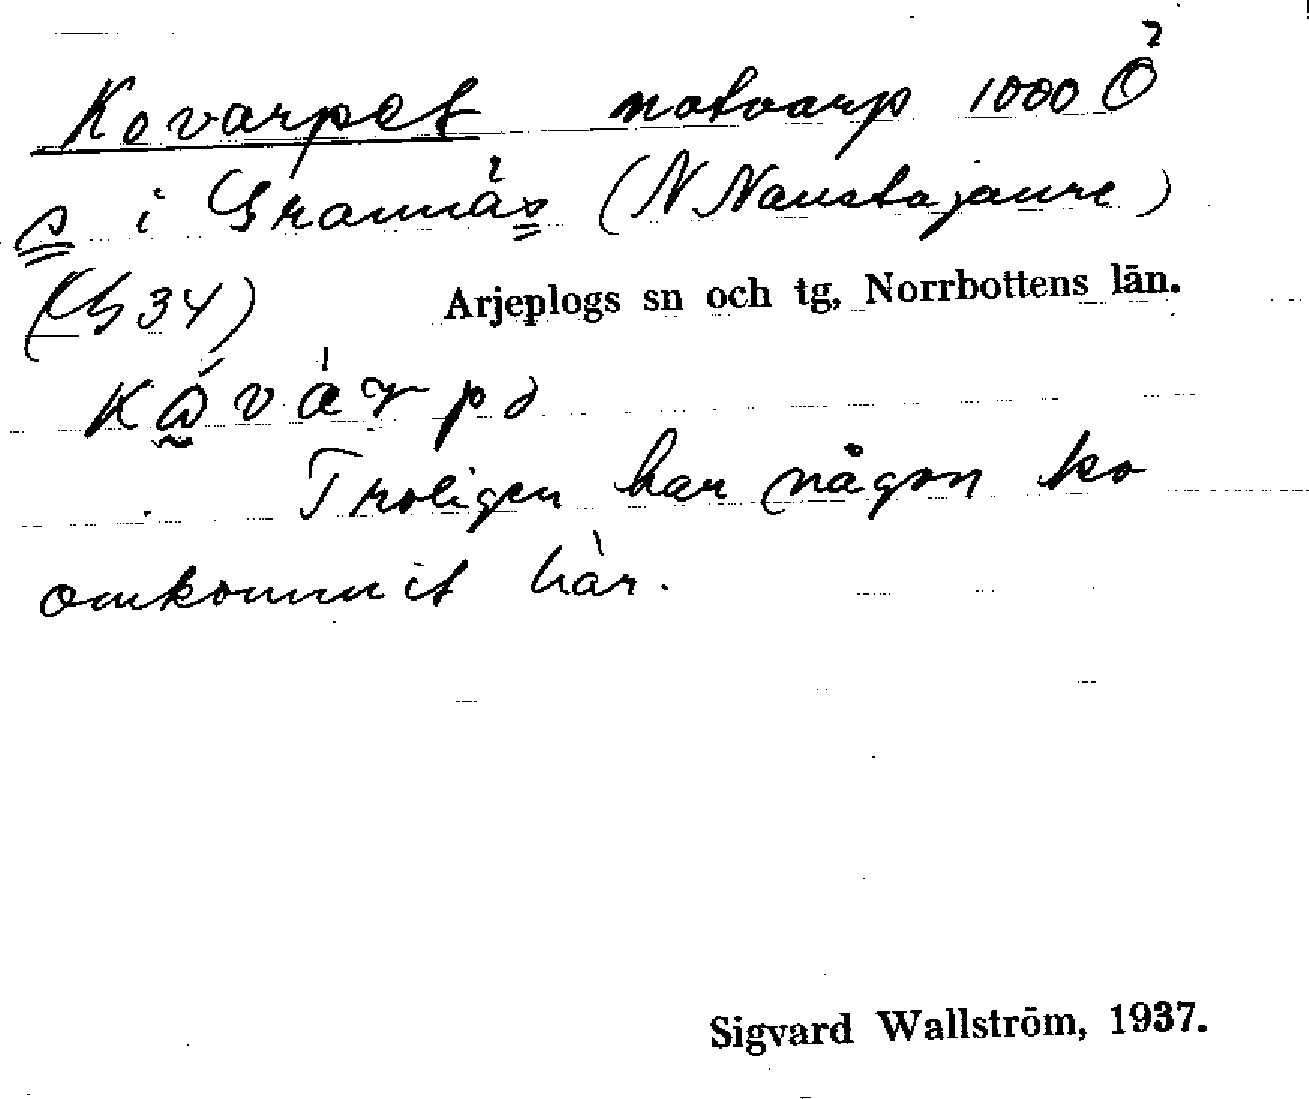 Kovarpet notvarp 1000 Ö
s i Grannäs (N Naustajaure)
(G 34) Arjeplogs sn och tg, Norrbottens län.
Troligen har någon ko
omkommit här.
Sigvard Wallström, 1937.